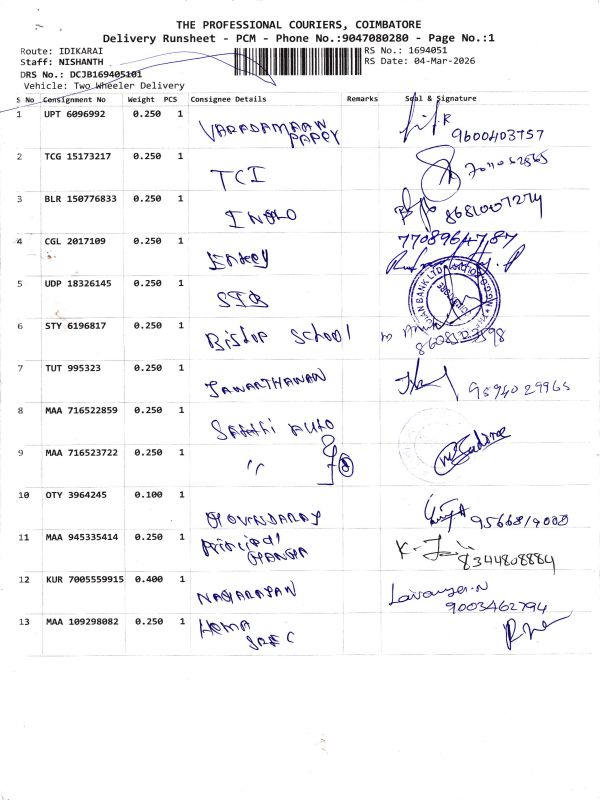 THE PROFESSIONAL COURIERS, COIMBATORE
Delivery Runsheet - PCM - Phone No.:9047080280 - Page No.:1
Route: IDIKARAI
RS No.: 1694051
Staff: NISHANTH
RS Date: 04-Mar-2026
DRS No.: DCJB169405101
Vehicle: Two Wheeler Delivery
S No Consignment No Weight PCS Consignee Details Remarks Seal & Signature
1 UPT 6096992 0.250 1 VARADAMAAN PAPER 9600403757
2 TCG 15173217 0.250 1 TCI
3 BLR 150776833 0.250 1 8681007274
4 CGL 2017109 0.250 1 7708964787
5 UDP 18326145 0.250 1
6 STY 6196817 0.250 1 Bistop School
7 TUT 995323 0.250 1 JANARTHANAN 9594029965
8 MAA 716522859 0.250 1 Sakthi AUTO
9 MAA 716523722 0.250 1 "
10 OTY 3964245 0.100 1 GOVINDARAJ
11 MAA 945335414 0.250 1 Principal 8344808884
12 KUR 7005559915 0.400 1 NAGARAJAN Lavanya.N 9003462794
13 MAA 109298082 0.250 1 HEMA